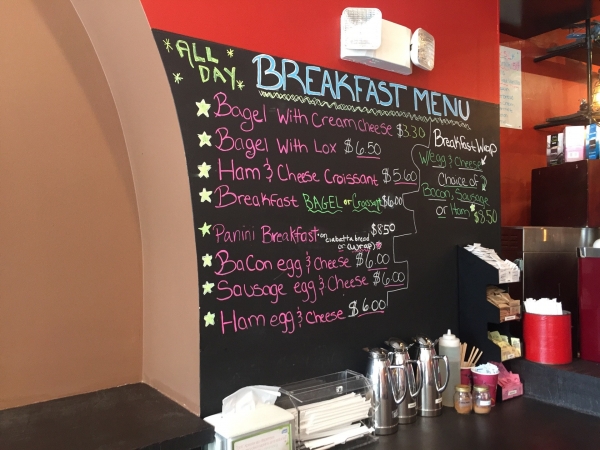 ALL DAY
BREAKFAST MENU
Bagel With Cream Cheese $3.30
Bagel With Lox $6.50
Ham & Cheese Croissant $5.60
Breakfast BAGEL or Croissant $6.00
Panini Breakfast on ciabatta bread or (wrap) $8.50
Bacon egg & Cheese $6.00
Sausage egg & Cheese $6.00
Ham egg & Cheese $6.00
Breakfast Wrap
W/Egg & Cheese
Choice of
Bacon, Sausage
or Ham $8.50